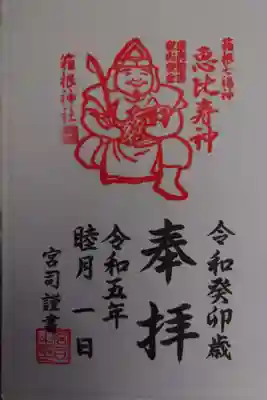 箱根七福神
恵比寿神
箱根神社
令和癸卯歳
奉拝
令和五年
睦月一日
宮司謹書